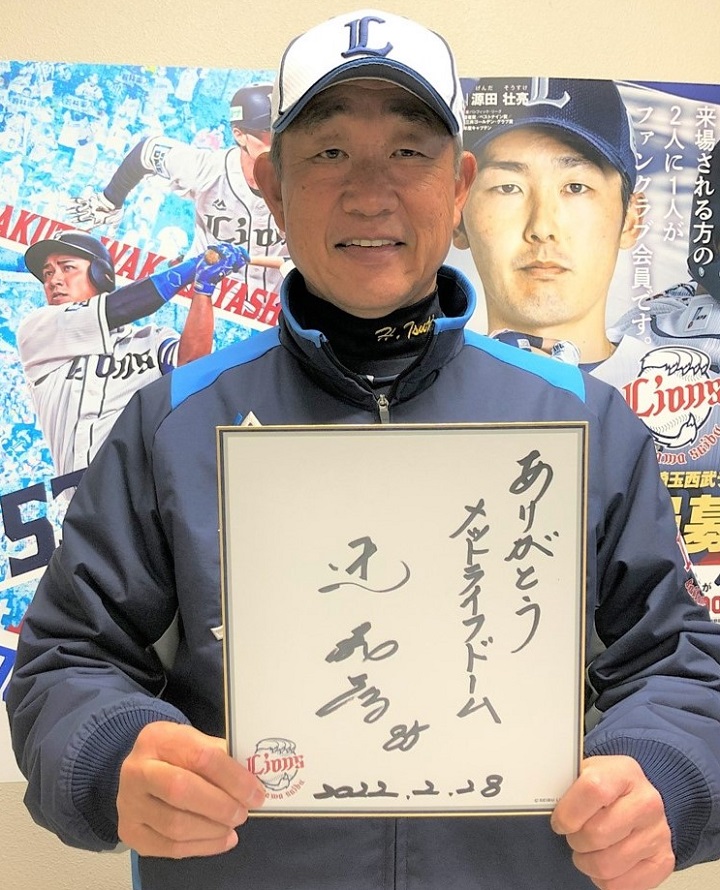 L
げんだ そうすけ
源田 壮亮
来場される方の
2人に1人が
ファンクラブ会員です。
Lions
Lions
Lions
H. Tsu
ありがとう
メットライフドーム
辻 発彦 85
Lions
2022.2.28